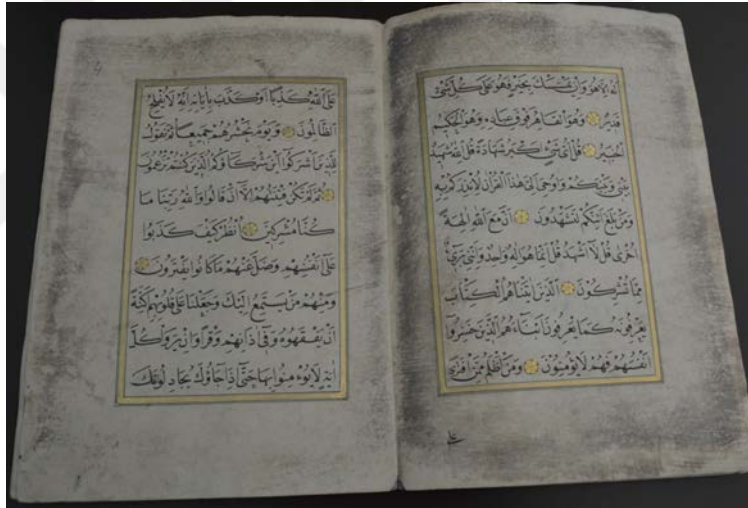 لَهُ اِلَّا هُوَ وَاِنْ يَمْسَسْكَ بِخَيْرٍ فَهُوَ عَلٰى كُلِّ شَیْءٍ
قَدِيرٌ وَهُوَ الْقَاهِرُ فَوْقَ عِبَادِهِ وَهُوَ الْحَكِيمُ
الْخَبِيرُ قُلْ اَىُّ شَیْءٍ اَكْبَرُ شَهَادَةً قُلِ اللّٰهُ شَهِيدٌ
بَيْنِى وَبَيْنَكُمْ وَاُوحِىَ اِلَىَّ هٰذَا الْقُرْاٰنُ لِاُنْذِرَكُمْ بِهِ
وَمَنْ بَلَغَ اَئِنَّكُمْ لَتَشْهَدُونَ اَنَّ مَعَ اللّٰهِ اٰلِهَةً
اُخْرٰى قُلْ لَا اَشْهَدُ قُلْ اِنَّمَا هُوَ اِلٰهٌ وَاحِدٌ وَاِنَّنِى بَرِىءٌ
مِمَّا تُشْرِكُونَ اَلَّذِينَ اٰتَيْنَاهُمُ الْكِتَابَ
يَعْرِفُونَهُ كَمَا يَعْرِفُونَ اَبْنَاءَهُمْ اَلَّذِينَ خَسِرُوا
اَنْفُسَهُمْ فَهُمْ لَا يُؤْمِنُونَ وَمَنْ اَظْلَمُ مِمَّنِ افْتَرٰى
على
عَلَى اللّٰهِ كَذِبًا اَوْ كَذَّبَ بِاٰيَاتِهِ اِنَّهُ لَا يُفْلِحُ
الظَّالِمُونَ وَيَوْمَ نَحْشُرُهُمْ جَمِيعًا ثُمَّ نَقُولُ
لِلَّذِينَ اَشْرَكُوا اَيْنَ شُرَكَاؤُكُمُ الَّذِينَ كُنْتُمْ تَزْعُمُونَ
ثُمَّ لَمْ تَكُنْ فِتْنَتُهُمْ اِلَّا اَنْ قَالُوا وَاللّٰهِ رَبِّنَا مَا
كُنَّا مُشْرِكِينَ اُنْظُرْ كَيْفَ كَذَبُوا
عَلٰى اَنْفُسِهِمْ وَضَلَّ عَنْهُمْ مَا كَانُوا يَفْتَرُونَ
وَمِنْهُمْ مَنْ يَسْتَمِعُ اِلَيْكَ وَجَعَلْنَا عَلٰى قُلُوبِهِمْ اَكِنَّةً
اَنْ يَفْقَهُوهُ وَفِى اٰذَانِهِمْ وَقْرًا وَاِنْ يَرَوْا كُلَّ
اٰيَةٍ لَا يُؤْمِنُوا بِهَا حَتّٰى اِذَا جَاؤُكَ يُجَادِلُونَكَ